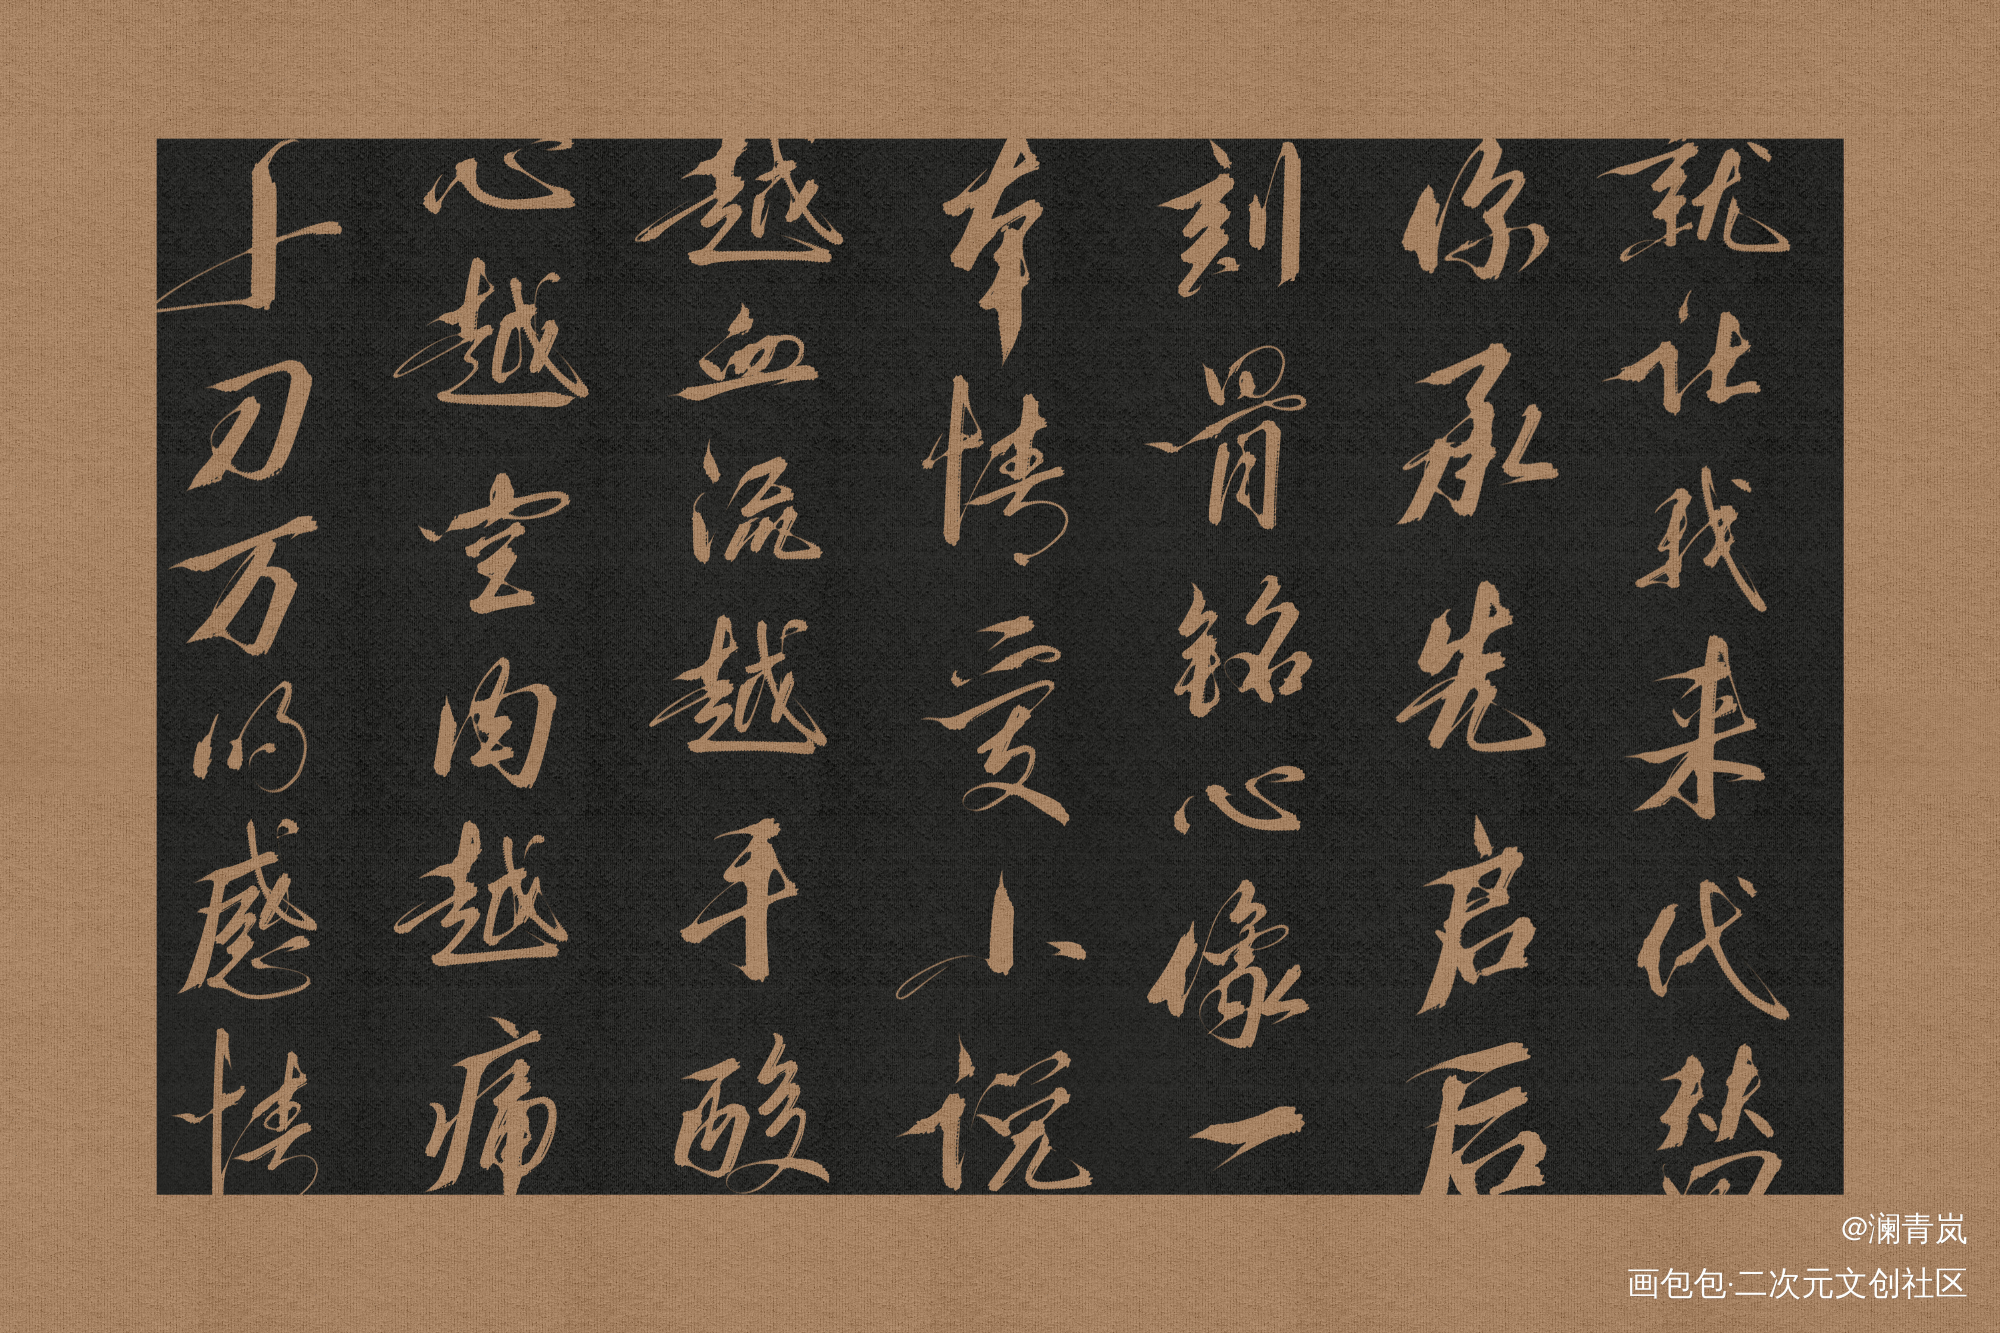 就让我来代替
你承先启后
刻骨铭心像一
本情爱小说
越血流越手酸
心越空肉越痛
上刀万的感情
@澜青岚
画包包·二次元文创社区